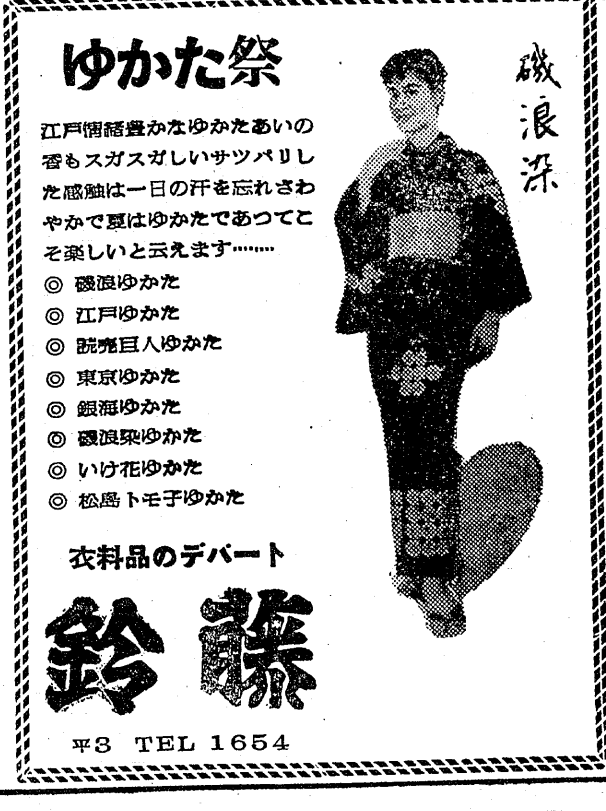 ゆかた祭
磯浪染
江戸情緒豊かなゆかたあいの
香もスガスガしいサツパリし
た感触は一日の汗を忘れさわ
やかで夏はゆかたであつてこ
そ楽しいと云えます………
◎ 磯浪ゆかた
◎ 江戸ゆかた
◎ 読売巨人ゆかた
◎ 東京ゆかた
◎ 銀海ゆかた
◎ 磯浪染ゆかた
◎ いけ花ゆかた
◎ 松島トモ子ゆかた
衣料品のデパート
鈴藤
平3 TEL 1654